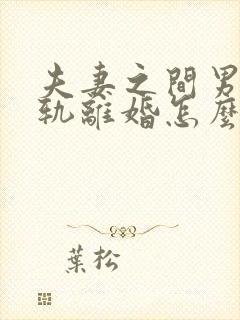 夫妻之間男
軌離婚怎麼
葉松